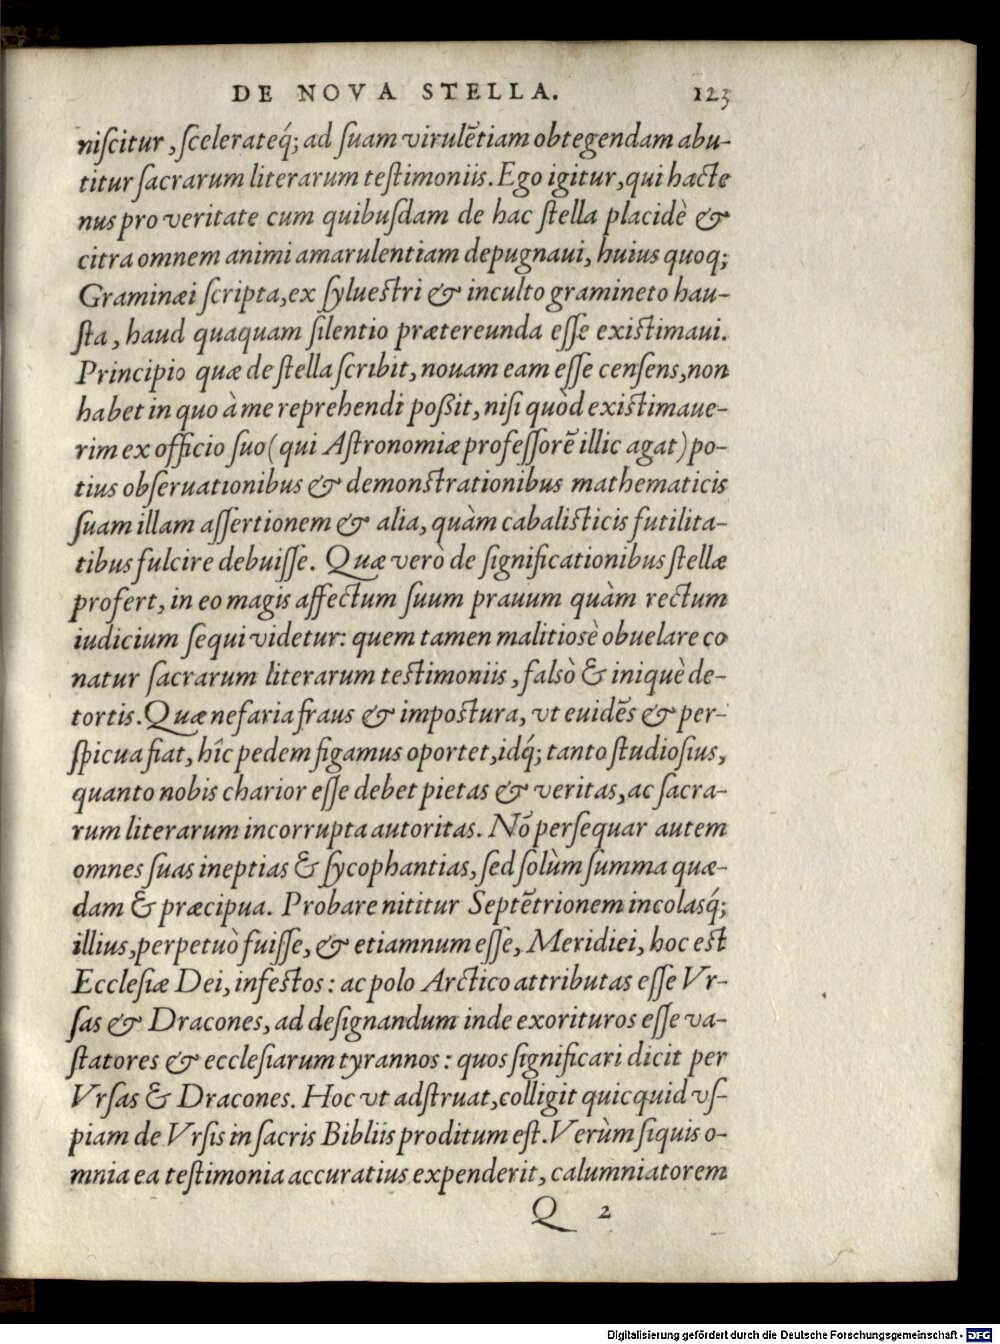 DE NOVA STELLA. 123
niſcitur, ſcelerateq́; ad ſuam virulētiam obtegendam abu-
titur ſacrarum literarum teſtimoniis. Ego igitur, qui hacte
nus pro veritate cum quibuſdam de hac ſtella placidè &
citra omnem animi amarulentiam depugnaui, huius quoq;
Graminæi ſcripta, ex ſylueſtri & inculto gramineto hau-
ſta, haud quaquam ſilentio prætereunda eſſe exiſtimaui.
Principio quæ de ſtella ſcribit, nouam eam eſſe cenſens, non
habet in quo à me reprehendi poßit, niſi quòd exiſtimaue-
rim ex officio ſuo (qui Aſtronomiæ profeſſorē illic agat) po-
tius obſeruationibus & demonſtrationibus mathematicis
ſuam illam aſſertionem & alia, quàm cabaliſticis futilita-
tibus fulcire debuiſſe. Quæ verò de ſignificationibus ſtellæ
profert, in eo magis affectum ſuum prauum quàm rectum
iudicium ſequi videtur: quem tamen malitiosè obuelare co
natur ſacrarum literarum teſtimoniis, falsò & iniquè de-
tortis. Quæ nefaria fraus & impoſtura, vt euidēs & per-
ſpicua fiat, hîc pedem figamus oportet, idq́; tanto ſtudioſius,
quanto nobis charior eſſe debet pietas & veritas, ac ſacra-
rum literarum incorrupta autoritas. Nō perſequar autem
omnes ſuas ineptias & ſycophantias, ſed ſolùm ſumma quæ-
dam & præcipua. Probare nititur Septētrionem incolasq́;
illius, perpetuò fuiſſe, & etiamnum eſſe, Meridiei, hoc eſt
Eccleſiæ Dei, infeſtos: ac polo Arctico attributas eſſe Vr-
ſas & Dracones, ad deſignandum inde exorituros eſſe va-
ſtatores & eccleſiarum tyrannos: quos ſignificari dicit per
Vrſas & Dracones. Hoc vt adſtruat, colligit quicquid vſ-
piam de Vrſis in ſacris Bibliis proditum eſt. Verùm ſiquis o-
mnia ea teſtimonia accuratius expenderit, calumniatorem
Q 2
Digitalisierung gefördert durch die Deutsche Forschungsgemeinschaft - DFG